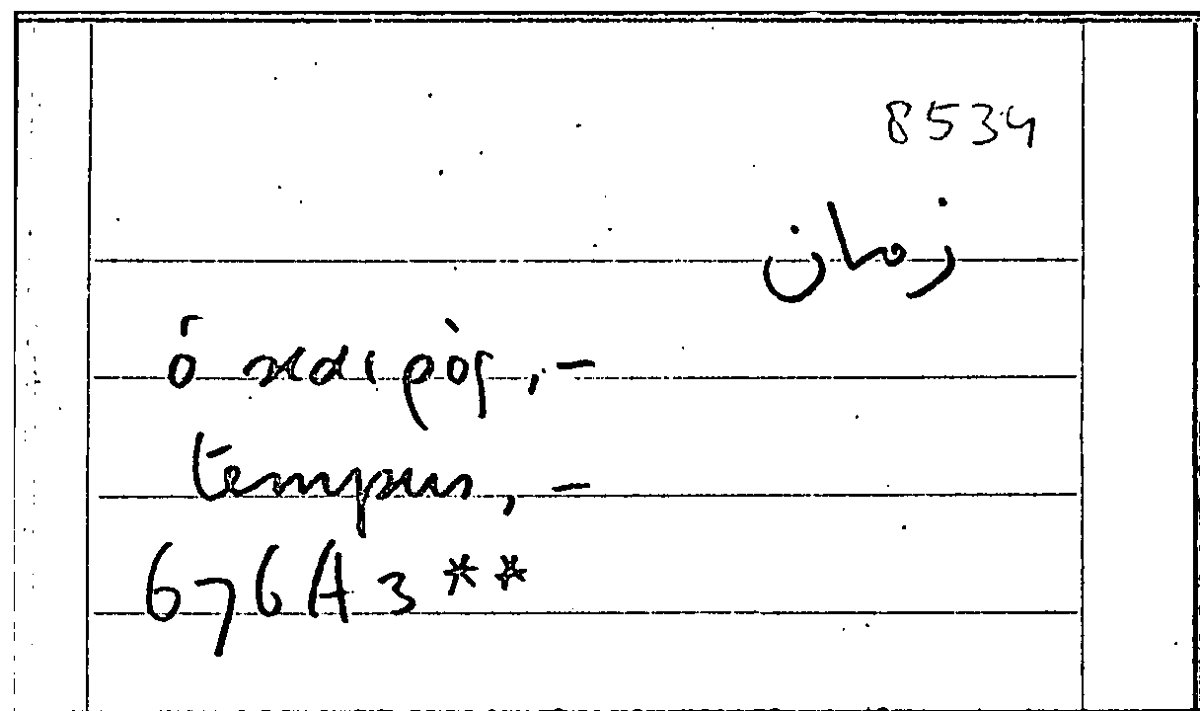 8534
زمان
ὁ καιρὸς, –
tempus, –
676A3**